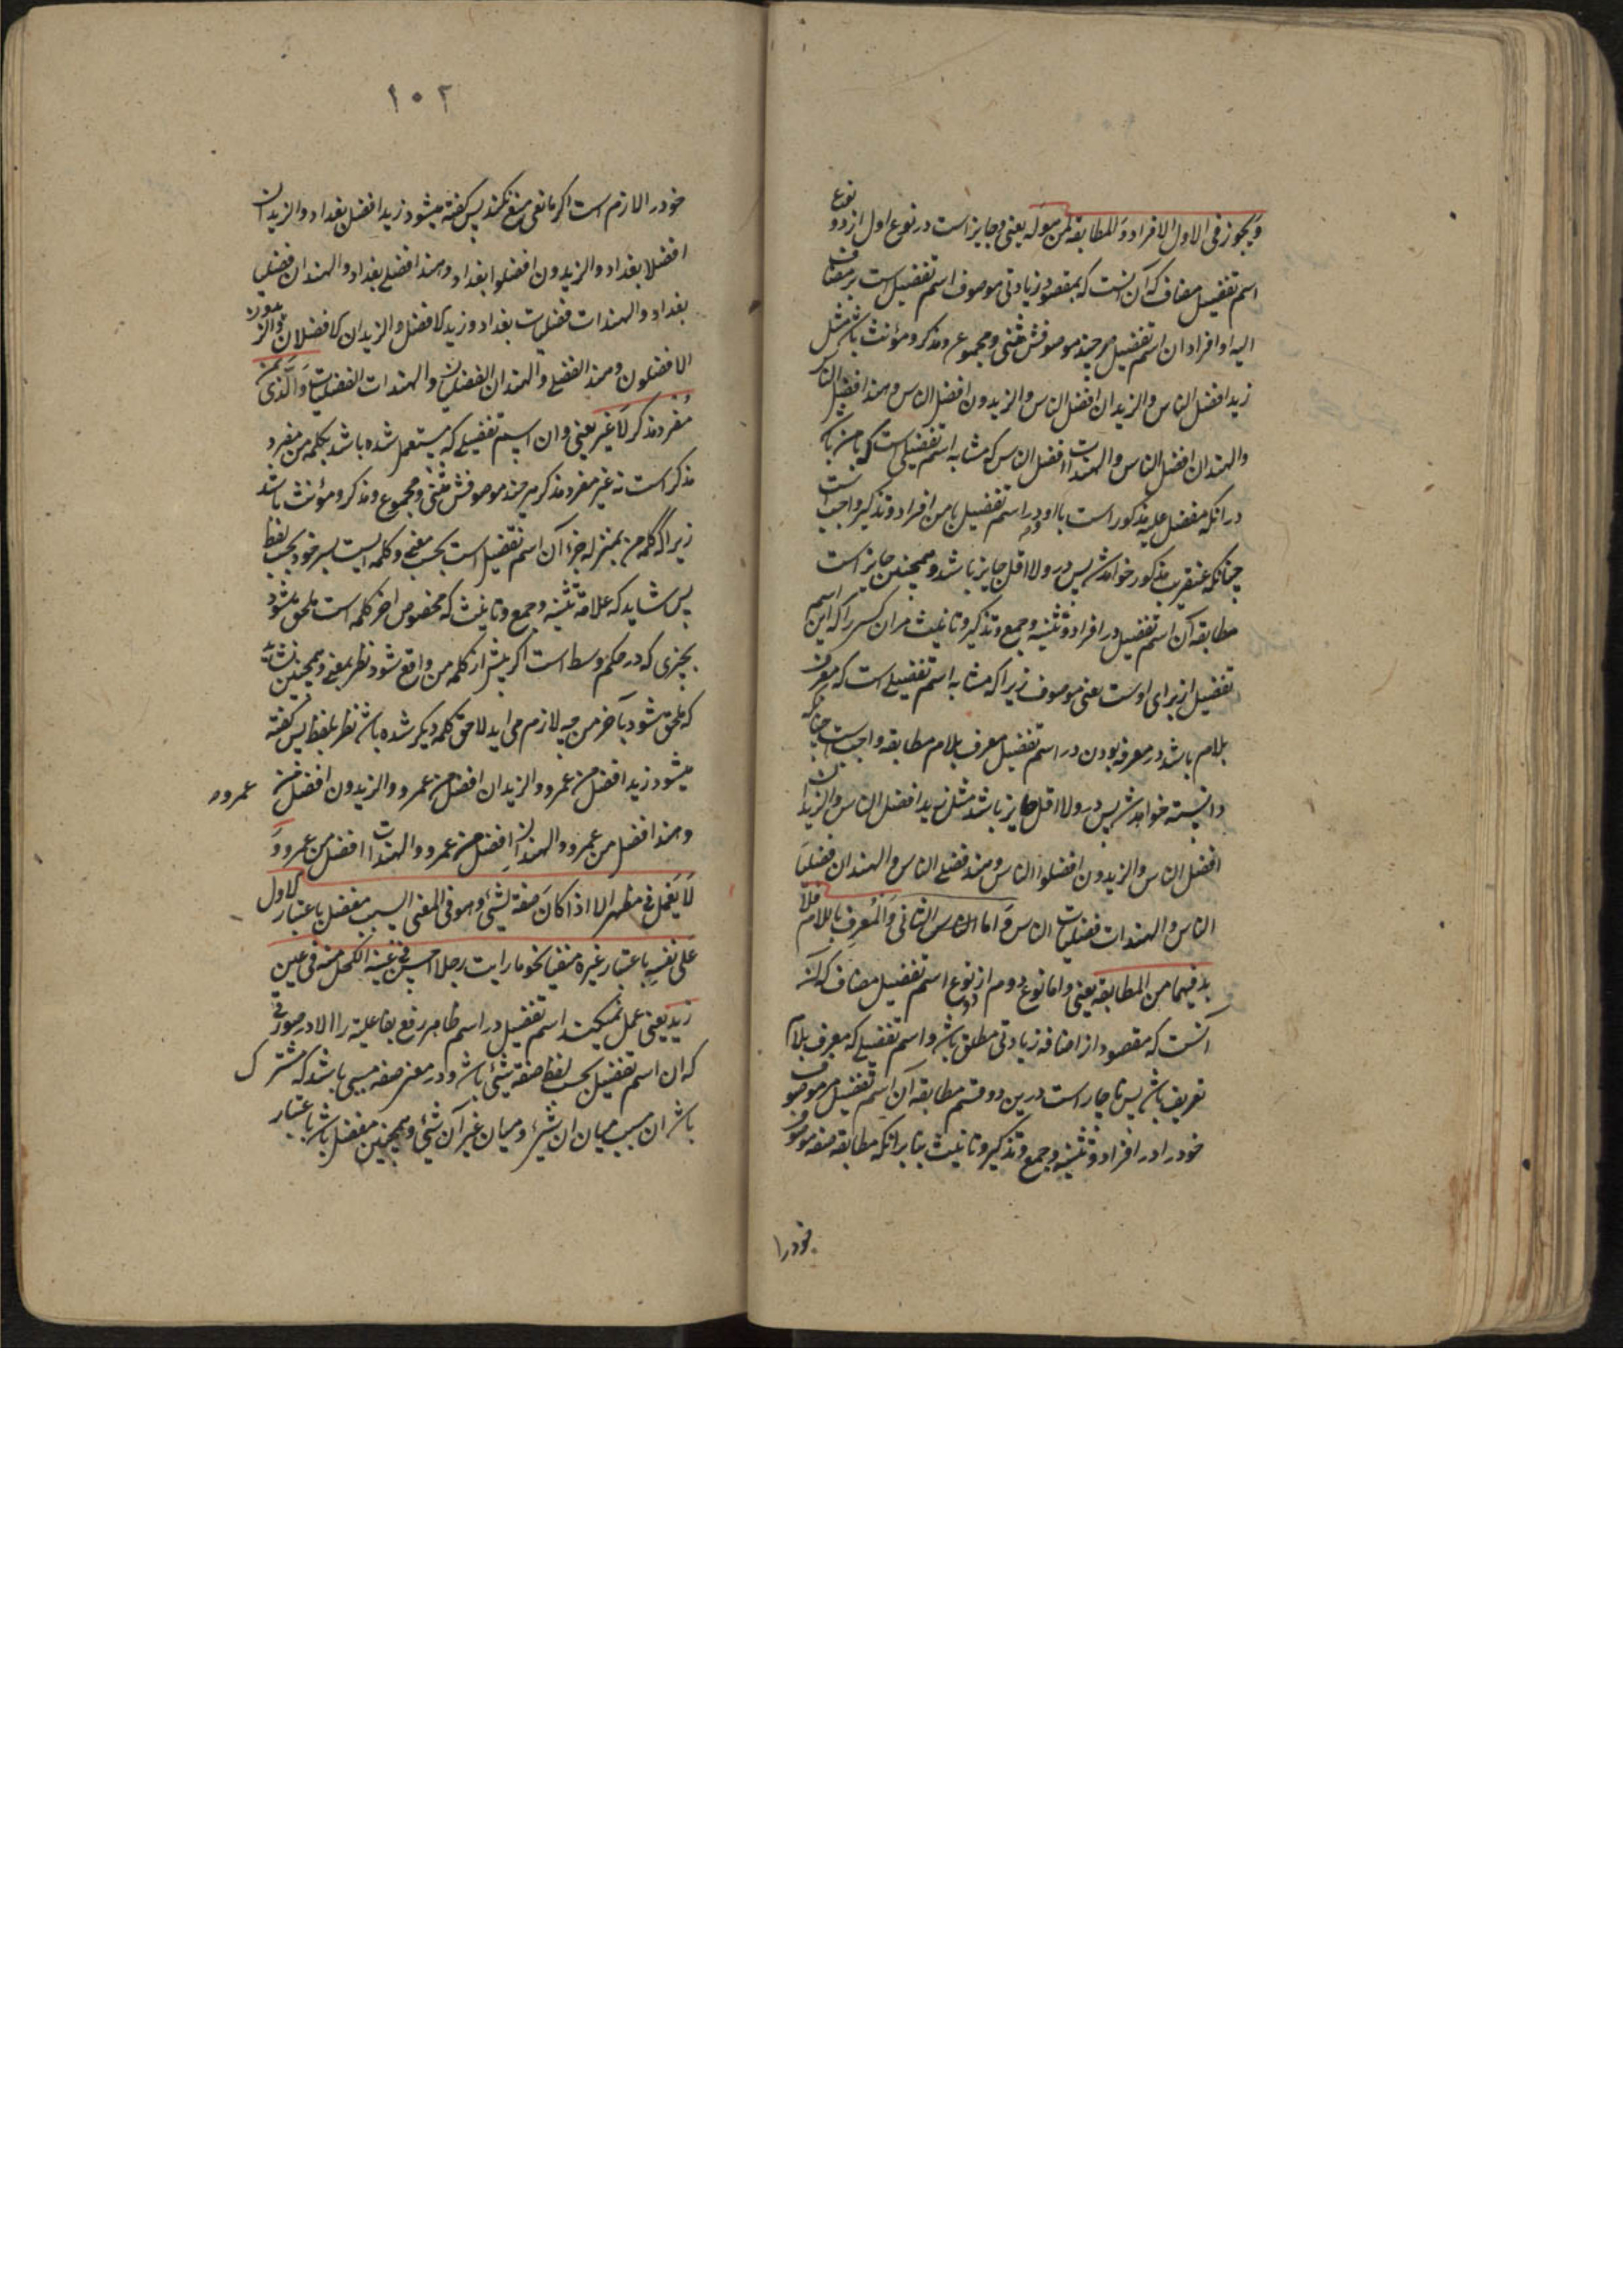 ویجوز فی الاول الافراد والمطابقة لمن هوله یعنی وجایز است در نوع اول از دو نوع
اسم تفضیل مضاف که آن انست که بمقصود زیادتی موصوف اسم تفضیل است بر مضاف
الیه او افراد ان اسم تفضیل هر چند موصوفش مثنی ومجموع ومذکر ومؤنث باشد مثل
زید افضل الناس والزیدان افضل الناس والزیدون افضل الناس وهند افضل الناس
والهندان افضل الناس والهندات افضل الناس که مشابه اسم تفضیلی است که با من باشد
در انکه مفضل علیه مذکور است با او ودر اسم تفضیل با من افراد وتذکیر واجب است
چنانکه عنقریب مذکور خواهد شد پس درو لا اقل جایز باشد وهمچنین جایز است
مطابقه آن اسم تفضیل در افراد وتثنیه وجمع وتذکیر وتانیث مران کسی را که این اسم
تفضیل از برای اوست یعنی موصوف زیرا که مشابه اسم تفضیلی است که معرف
بلام باشد در معرفه بودن ودر اسم تفضیل معرف بلام مطابقه واجب است چنانکه
دانسته خواهد شد پس درو لا اقل جایز باشد مثل زید افضل الناس والزیدان
افضل الناس والزیدون افضلوا الناس وهند فضلی الناس والهندان فضلیا
الناس والهندات فضلیات الناس واما الثانی والمعرف باللام فلا
بد فیهما من المطابقه یعنی واما نوع دوم از دو نوع اسم تفضیل مضاف که آن
انست که مقصود از اضافه زیادتی مطلق باشد واسم تفضیلی که معرف بلام
تعریف باشد پس ناچار است درین دو قسم مطابقه آن اسم تفضیل مر موصوف
خود را در افراد وتثنیه وجمع وتذکیر وتانیث بنا برانکه مطابقه صفه موصوف
خود را
۱۰۲
خود را لازم است اکر مانعی منع نکند پس کفته میشود زید افضل بغداد والزیدان
افضلا بغداد والزیدون افضلوا بغداد وهند فضلی بغداد والهندان فضلیا
بغداد والهندات فضلیات بغداد وزید الافضل والزیدان الافضلان والزیدون
الافضلون وهند الفضلی والهندان الفضلیان والهندات الفضلیات والذی بمن
مفرد مذکر لا غیر یعنی وان اسم تفضیلی که مستعمل شده باشد بکلمه من مفرد
مذکر است نه غیر مفرد مذکر هر چند موصوفش مثنی ومجموع ومذکر ومؤنث باشد
زیرا که کلمه من بمنزله جزء آن اسم تفضیل است بحسب معنی وکلمه ایست بسر خود بحسب لفظ
پس نشاید که علامة تثنیه وجمع وتانیث که مخصوص اخر کلمه است ملحق شود
بچیزی که در حکم وسط است اکر پیش از کلمه من واقع شود نظر بمعنی وهمچنین نشاید
که ملحق شود بآخر من چه لازم می اید لاحق کلمه دیکر شده باشد نظر بلفظ پس کفته
میشود زید افضل من عمرو والزیدان افضل من عمرو والزیدون افضل من عمرو
وهند افضل من عمرو والهندان افضل من عمرو والهندات افضل من عمرو و
لا یعمل فی مظهر الا اذا کان صفة لشئ وهو فی المعنی لسبب مفضل باعتبار الاول
علی نفسه باعتبار غیره منفیا نحو ما رایت رجلا احسن فی عینه الکحل منه فی عین
زید یعنی عمل نمیکند اسم تفضیل در اسم ظاهر رفع بفاعلیة را الا در صورتی
که ان اسم تفضیل بحسب لفظ صفة شیئی باشد ودر معنی صفه مسببی باشد که مشترک
باشد ان مسبب میان ان شئ ومیان غیر آن شئ وهمچنین مفضل باشد باعتبار